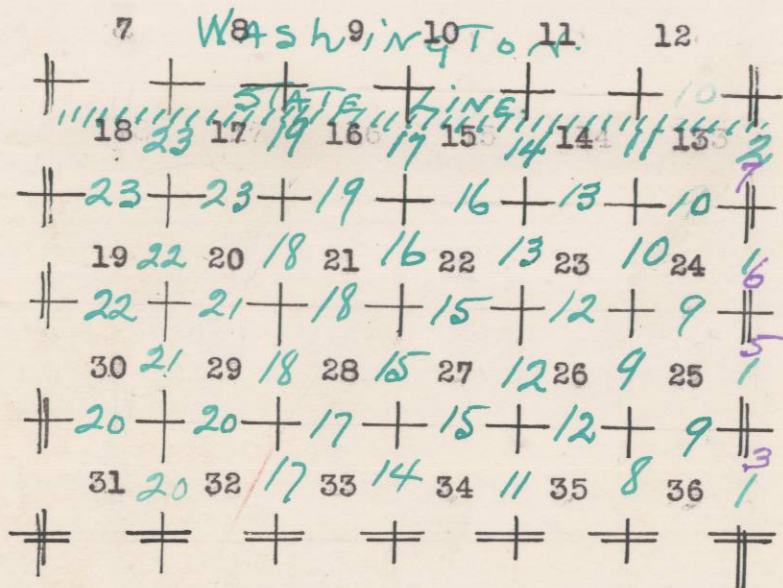 7 8 9 10 11 12
WAShiNgToN.
10
STATE LiNE.
18 23 17 19 16 17 15 14 14 11 13 2
7
23 23 19 16 13 10
19 22 20 18 21 16 22 13 23 10 24 1
6
22 21 18 15 12 9
5
30 21 29 18 28 15 27 12 26 9 25 1
20 20 17 15 12 9
3
31 20 32 17 33 14 34 11 35 8 36 1